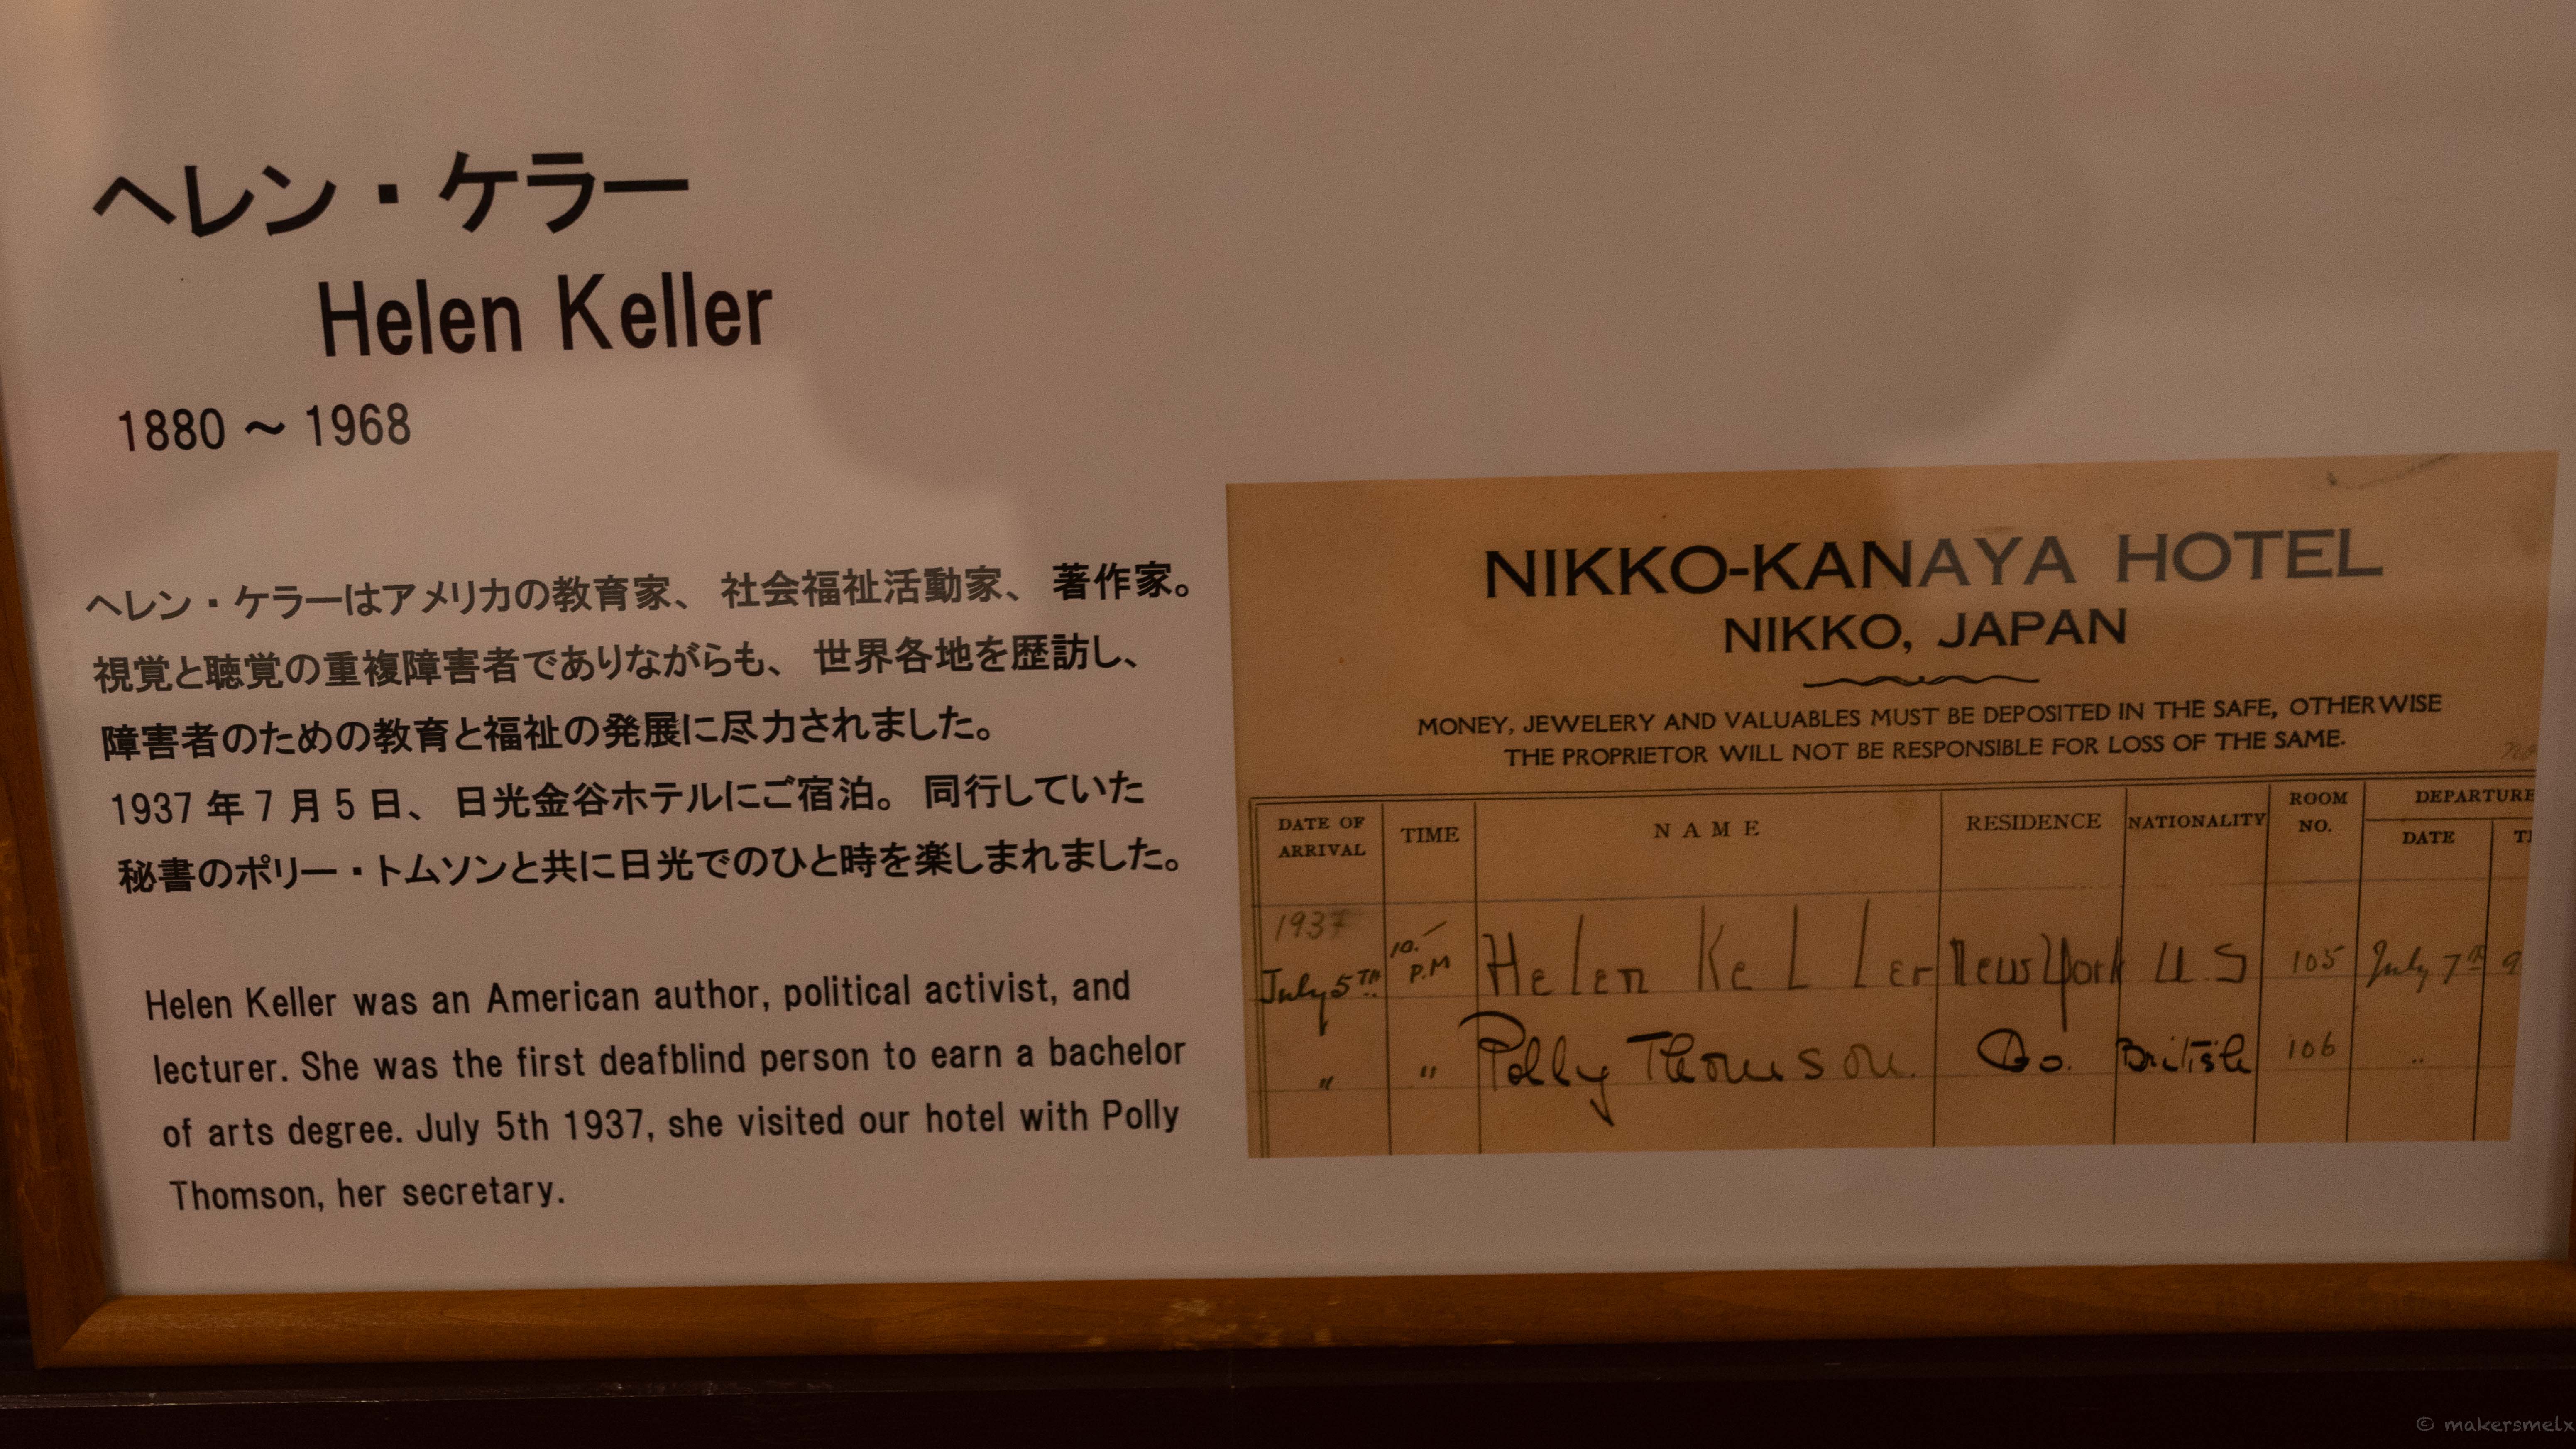 ヘレン・ケラー
Helen Keller
1880 ～ 1968
ヘレン・ケラーはアメリカの教育家、社会福祉活動家、著作家。
視覚と聴覚の重複障害者でありながらも、世界各地を歴訪し、
障害者のための教育と福祉の発展に尽力されました。
1937 年 7 月 5 日、日光金谷ホテルにご宿泊。同行していた
秘書のポリー・トムソンと共に日光でのひと時を楽しまれました。
Helen Keller was an American author, political activist, and
lecturer. She was the first deafblind person to earn a bachelor
of arts degree. July 5th 1937, she visited our hotel with Polly
Thomson, her secretary.
NIKKO-KANAYA HOTEL
NIKKO, JAPAN
MONEY, JEWELERY AND VALUABLES MUST BE DEPOSITED IN THE SAFE, OTHERWISE
THE PROPRIETOR WILL NOT BE RESPONSIBLE FOR LOSS OF THE SAME.
DATE OF ARRIVAL TIME NAME RESIDENCE NATIONALITY ROOM NO. DEPARTURE
DATE
1937
July 5TH 10.— P.M Helen KeLLer New York U.S 105 July 7th 9
" " Polly Thomson. Do. British 106 "
© makersmelx